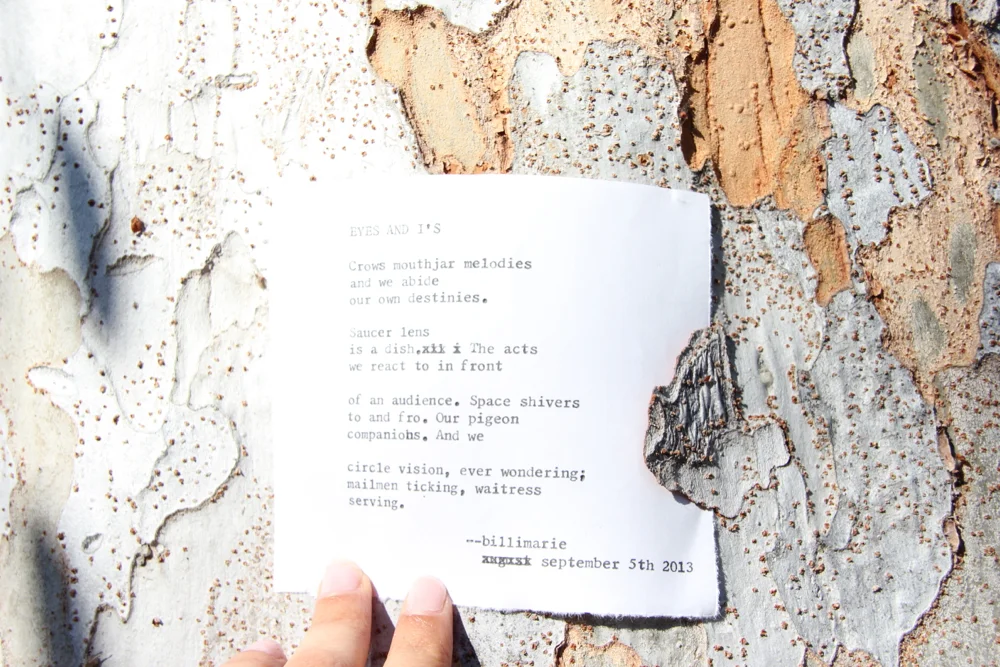 EYES AND I'S
Crows mouthjar melodies
and we abide
our own destinies.
Saucer lens
is a dish. The acts
we react to in front
of an audience. Space shivers
to and fro. Our pigeon
companiohs. And we
circle vision, ever wondering;
mailmen ticking, waitress
serving.
--billimarie
september 5th 2013